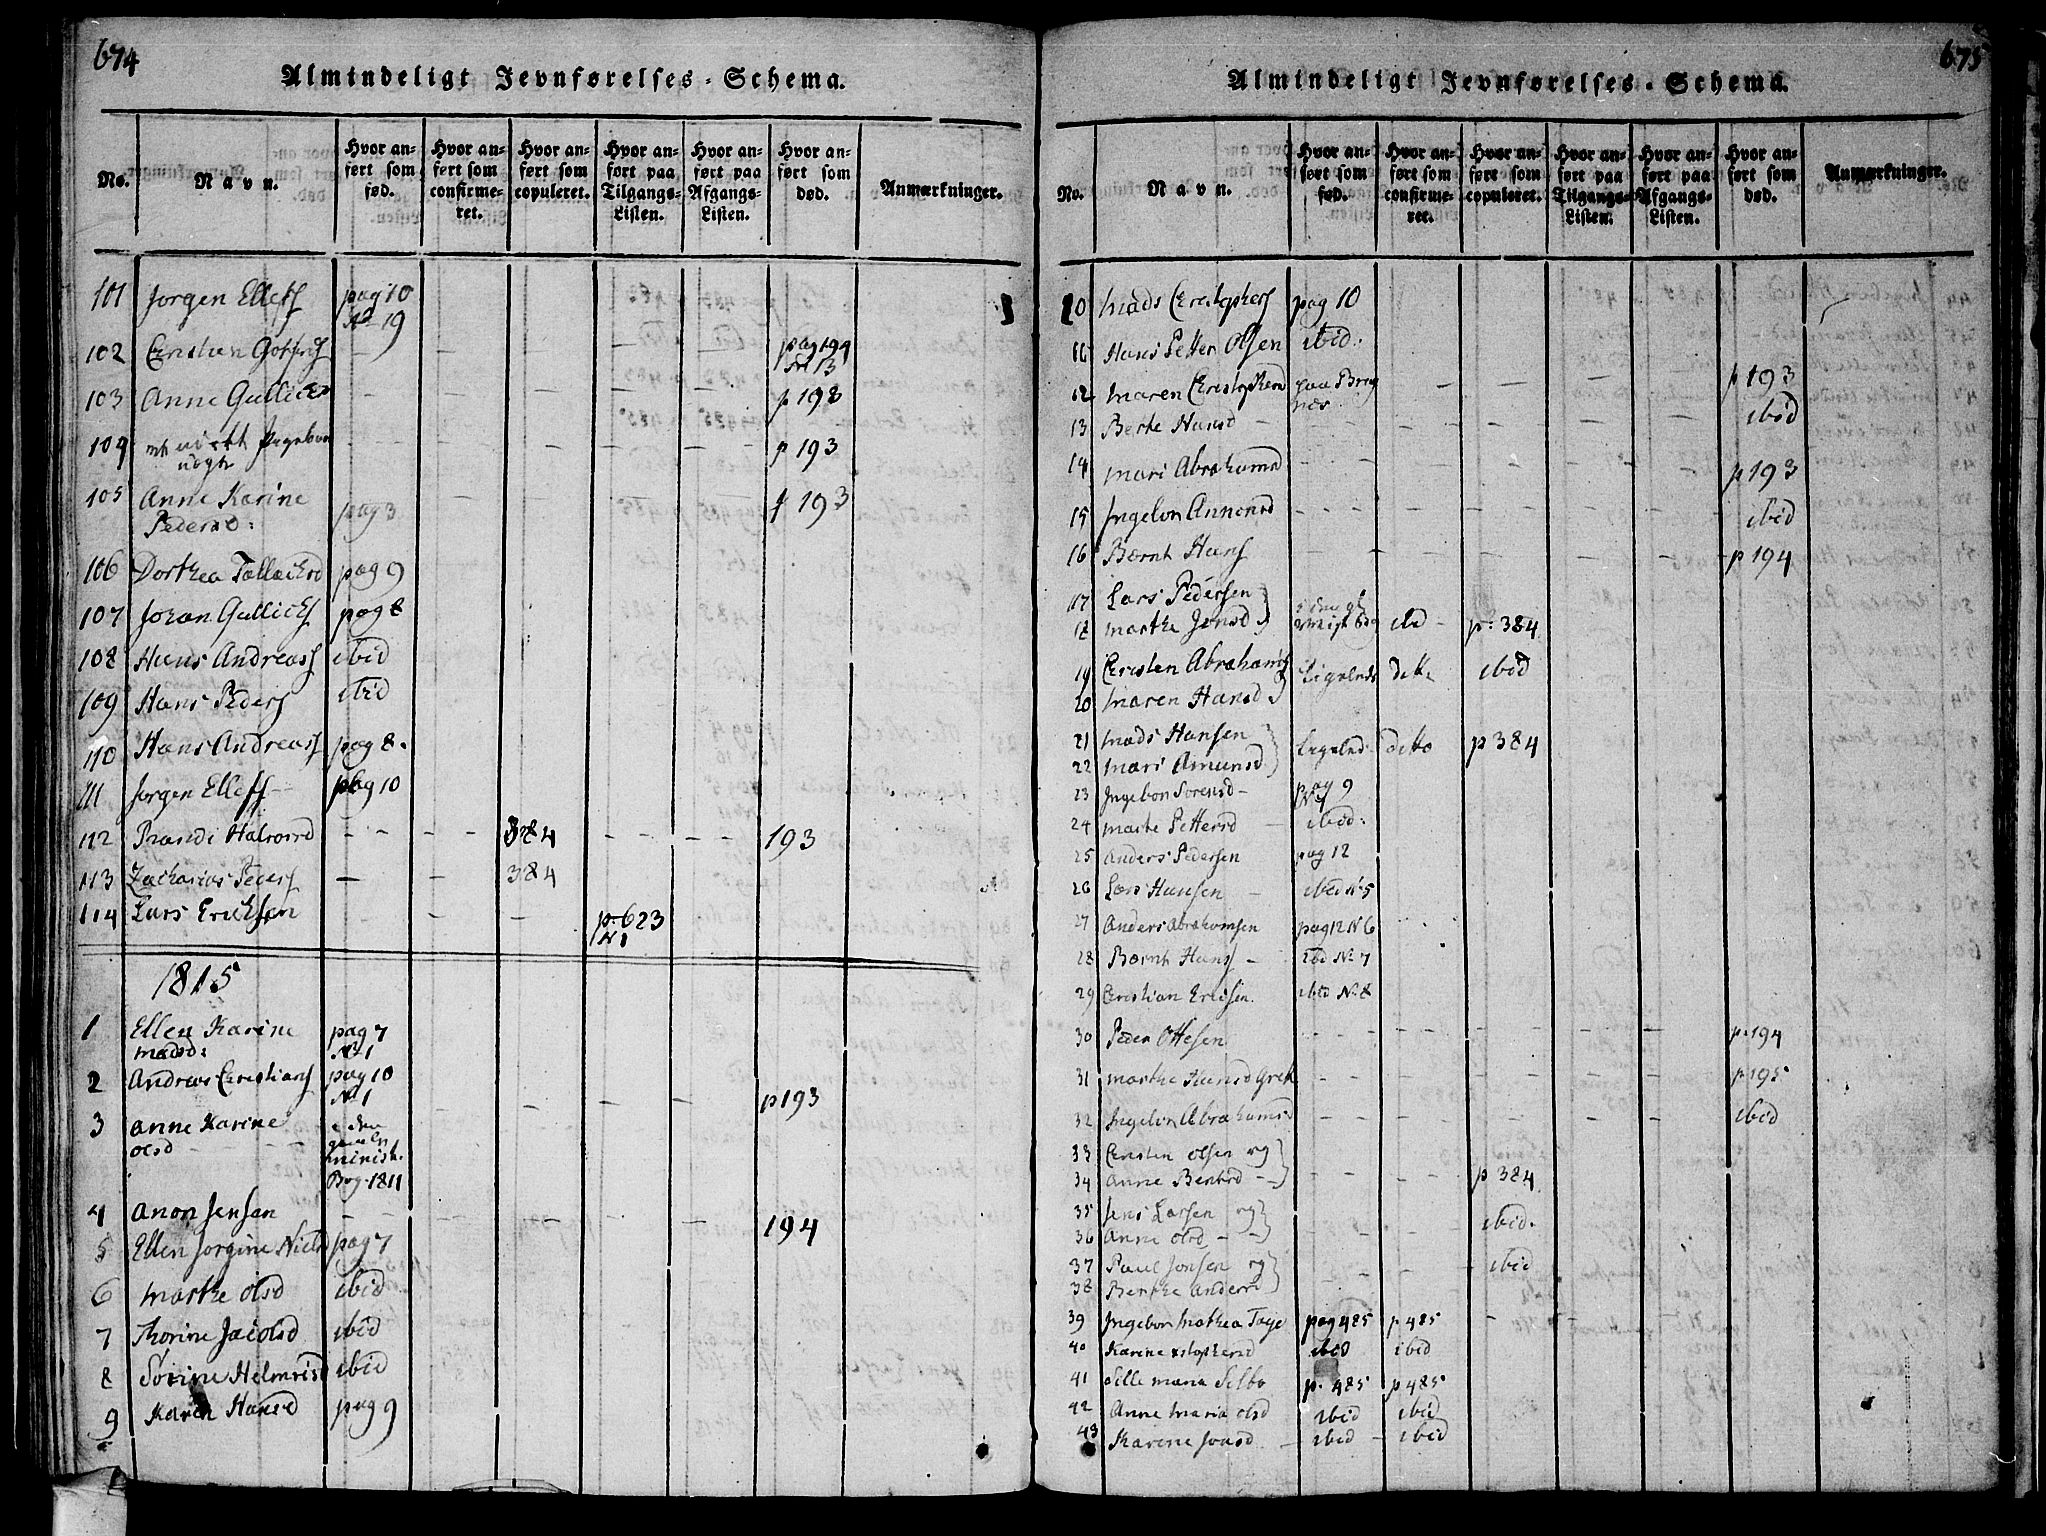 674
Almindeligt Jevnførelses-Schema.
No.
Navn.
Hvor anført som fød.
Hvor anført som confirmeret.
Hvor anført som copuleret.
Hvor anført paa Tilgangs-Listen.
Hvor anført paa Afgangs-Listen.
Hvor anført som død.
Anmærkninger.
101 Jorgen Ellefs pag 10
No 19
102 Cristian — — — — — pag 194
No 13
103 Anne Gullichsd — — — — p 198
104 — — — — p 193
105 Anne Karine — p 193
Pedersd: pag 3
106 Dorthea Tollachsd pag 9
107 Johan Gullichs pag 8
108 Hans Andreass ibid
109 Hans Peders ibid
110 Hans Andreass pag 8.
111 Jorgen Ellefs — pag 10
112 Halvorsd — — — — 384 — — — 193
113 Zacharias Peders — — 384
114 Lars Ericksen — — — p. 623
N 1
1815
1 Ellen Karine pag 7
madsd: No 1
2 Andreas Cristians pag 10
No 1
3 Anne Karine — — — — p 193
olsd — — — i den gamle
minist.
Bog 1811
4 Anon Jensen — — — — — 194
5 Ellen Jorgine Nielsd pag 7
6 Marthe olsd ibid
7 Thorine Jacobsd ibid
8 Sorine Helmersd ibid
9 Karen Hansd pag 9
675
Almindeligt Jevnførelses-Schema.
No.
Navn.
Hvor anført som fød.
Hvor anført som confirmeret.
Hvor anført som copuleret.
Hvor anført paa Tilgangs-Listen.
Hvor anført paa Afgangs-Listen.
Hvor anført som død.
Anmærkninger.
10 Mads Cristophers pag 10
11 Hans Petter Olsen ibid.
12 Maren Cristophersd paa Brag — — — p 193
næs
13 Berte Hansd — ibid
14 Mari Abrahamsd — — — — — p 193
15 Ingebor Annonsd — — — — — ibid
16 Bærnt Hans — — — — — p 194
17 Lars Pedersen
18 Marthe Jensd — p: 384
19 Cristen Abrahams Ligeleds ditto ibid
20 Maren Hansd
21 Mads Hansen Ligeleds ditto p 384
22 Mari Amunsd
23 Ingebor Sorensd — pag 9
24 Marte Pettersd — ibid.
25 Anders Pedersen pag 12
26 Lars Hansen — ibid N 5
27 Anders Abrahamsen pag 12 N 6
28 Bærnt Hans — ibid No 7
29 Cristian Ericsen. ibid No 8
30 Peder Ottesen — — — — — p. 194
31 Marthe Hansd — — — — — p 195
32 Ingebor Abrahamsd — — — — — ibid
33 Cristen Olsen og
34 Anne Berntsd — — — — p 384
35 Jens Larsen og
36 Anne olsd — — — — ibid.
37 Paul Jonsen og
38 Berthe Andersd — — — — ibid
39 Ingebor Mathea Taje pag 485 p 485 —
40 Karine xstophersd ibid ibid
41 Sille Maria Selbo p. 485 p 485
42 Anne Maria olsd ibid ibid
43 Karine Jonsd — ibid — ibid